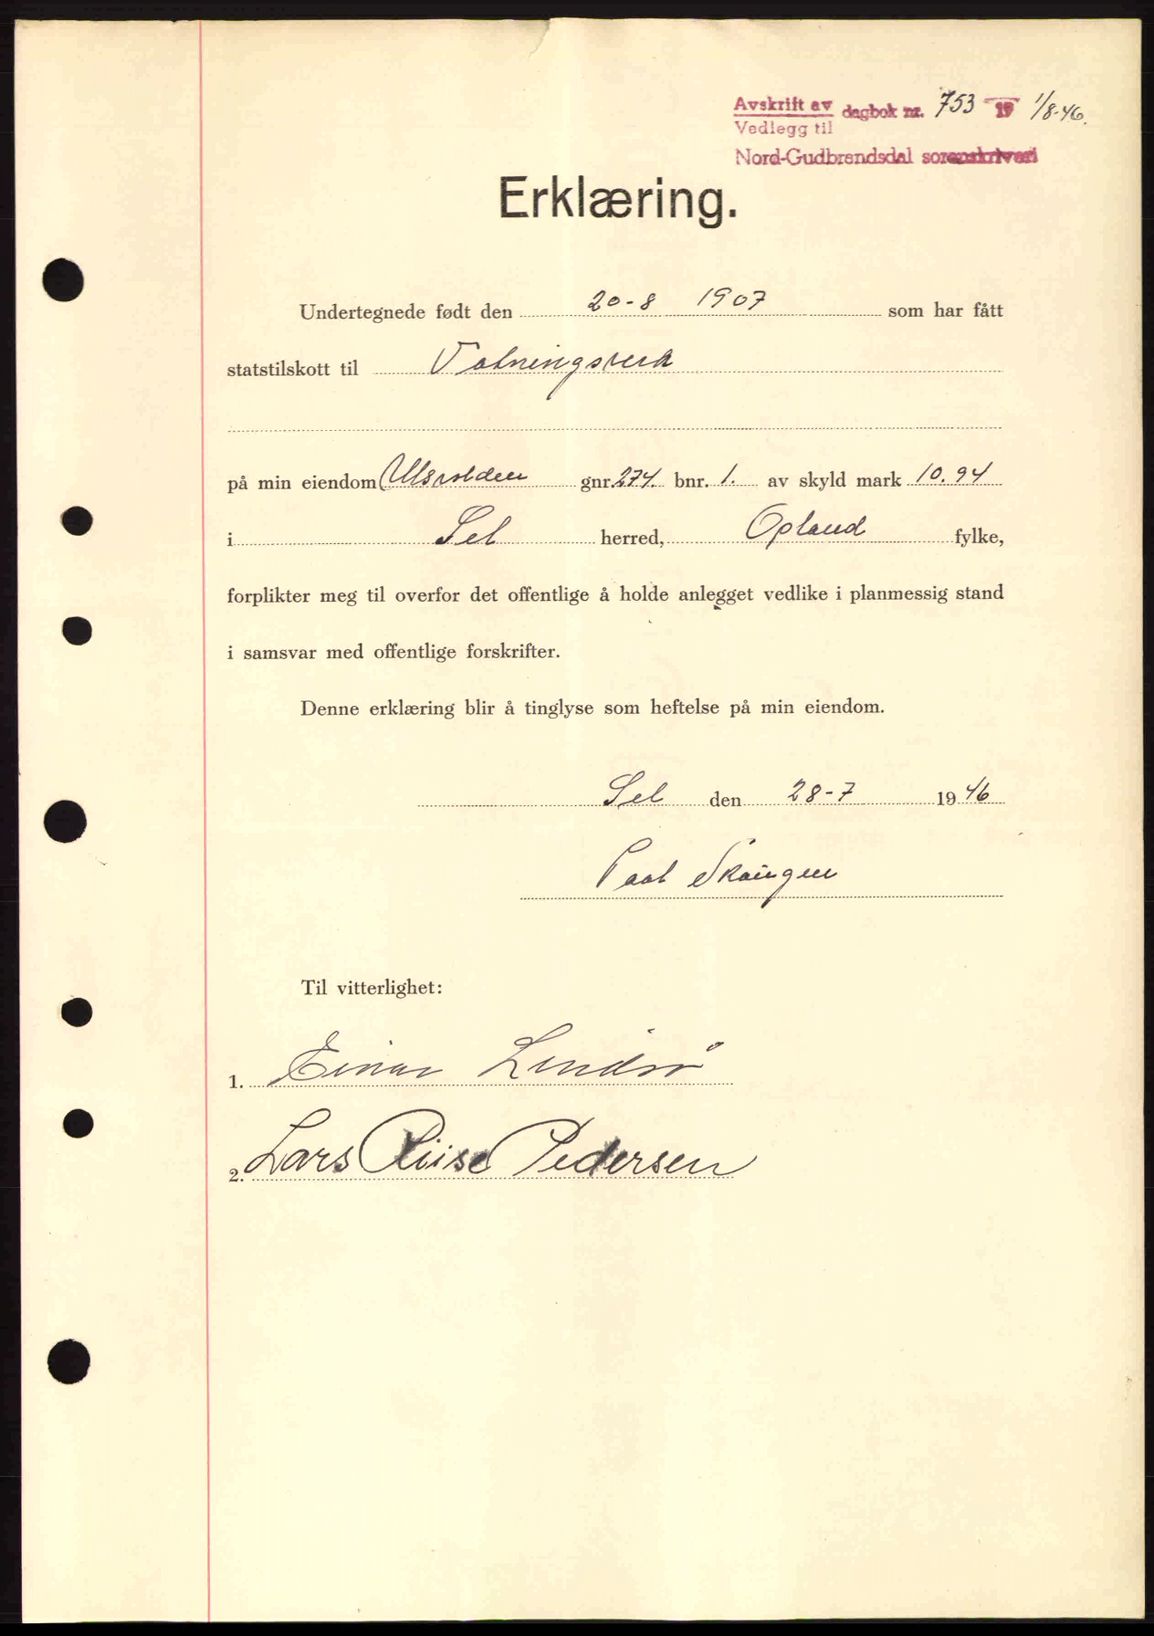 Avskrift av dagbok nr. 753 19 1/8-46.
Vedlegg til
Nord-Gudbrandsdal sorenskriveri
Erklæring.
Undertegnede født den 20-8 1907 som har fått
statstilskott til Vatningsverk
på min eiendom Ulsvolden gnr. 274. bnr. 1. av skyld mark 10.94
i Sel herred, Opland fylke,
forplikter meg til overfor det offentlige å holde anlegget vedlike i planmessig stand
i samsvar med offentlige forskrifter.
Denne erklæring blir å tinglyse som heftelse på min eiendom.
Sel den 28-7 1946
Paal Skaugen
Til vitterlighet:
1. Einar
2. Lars Riise Pedersen